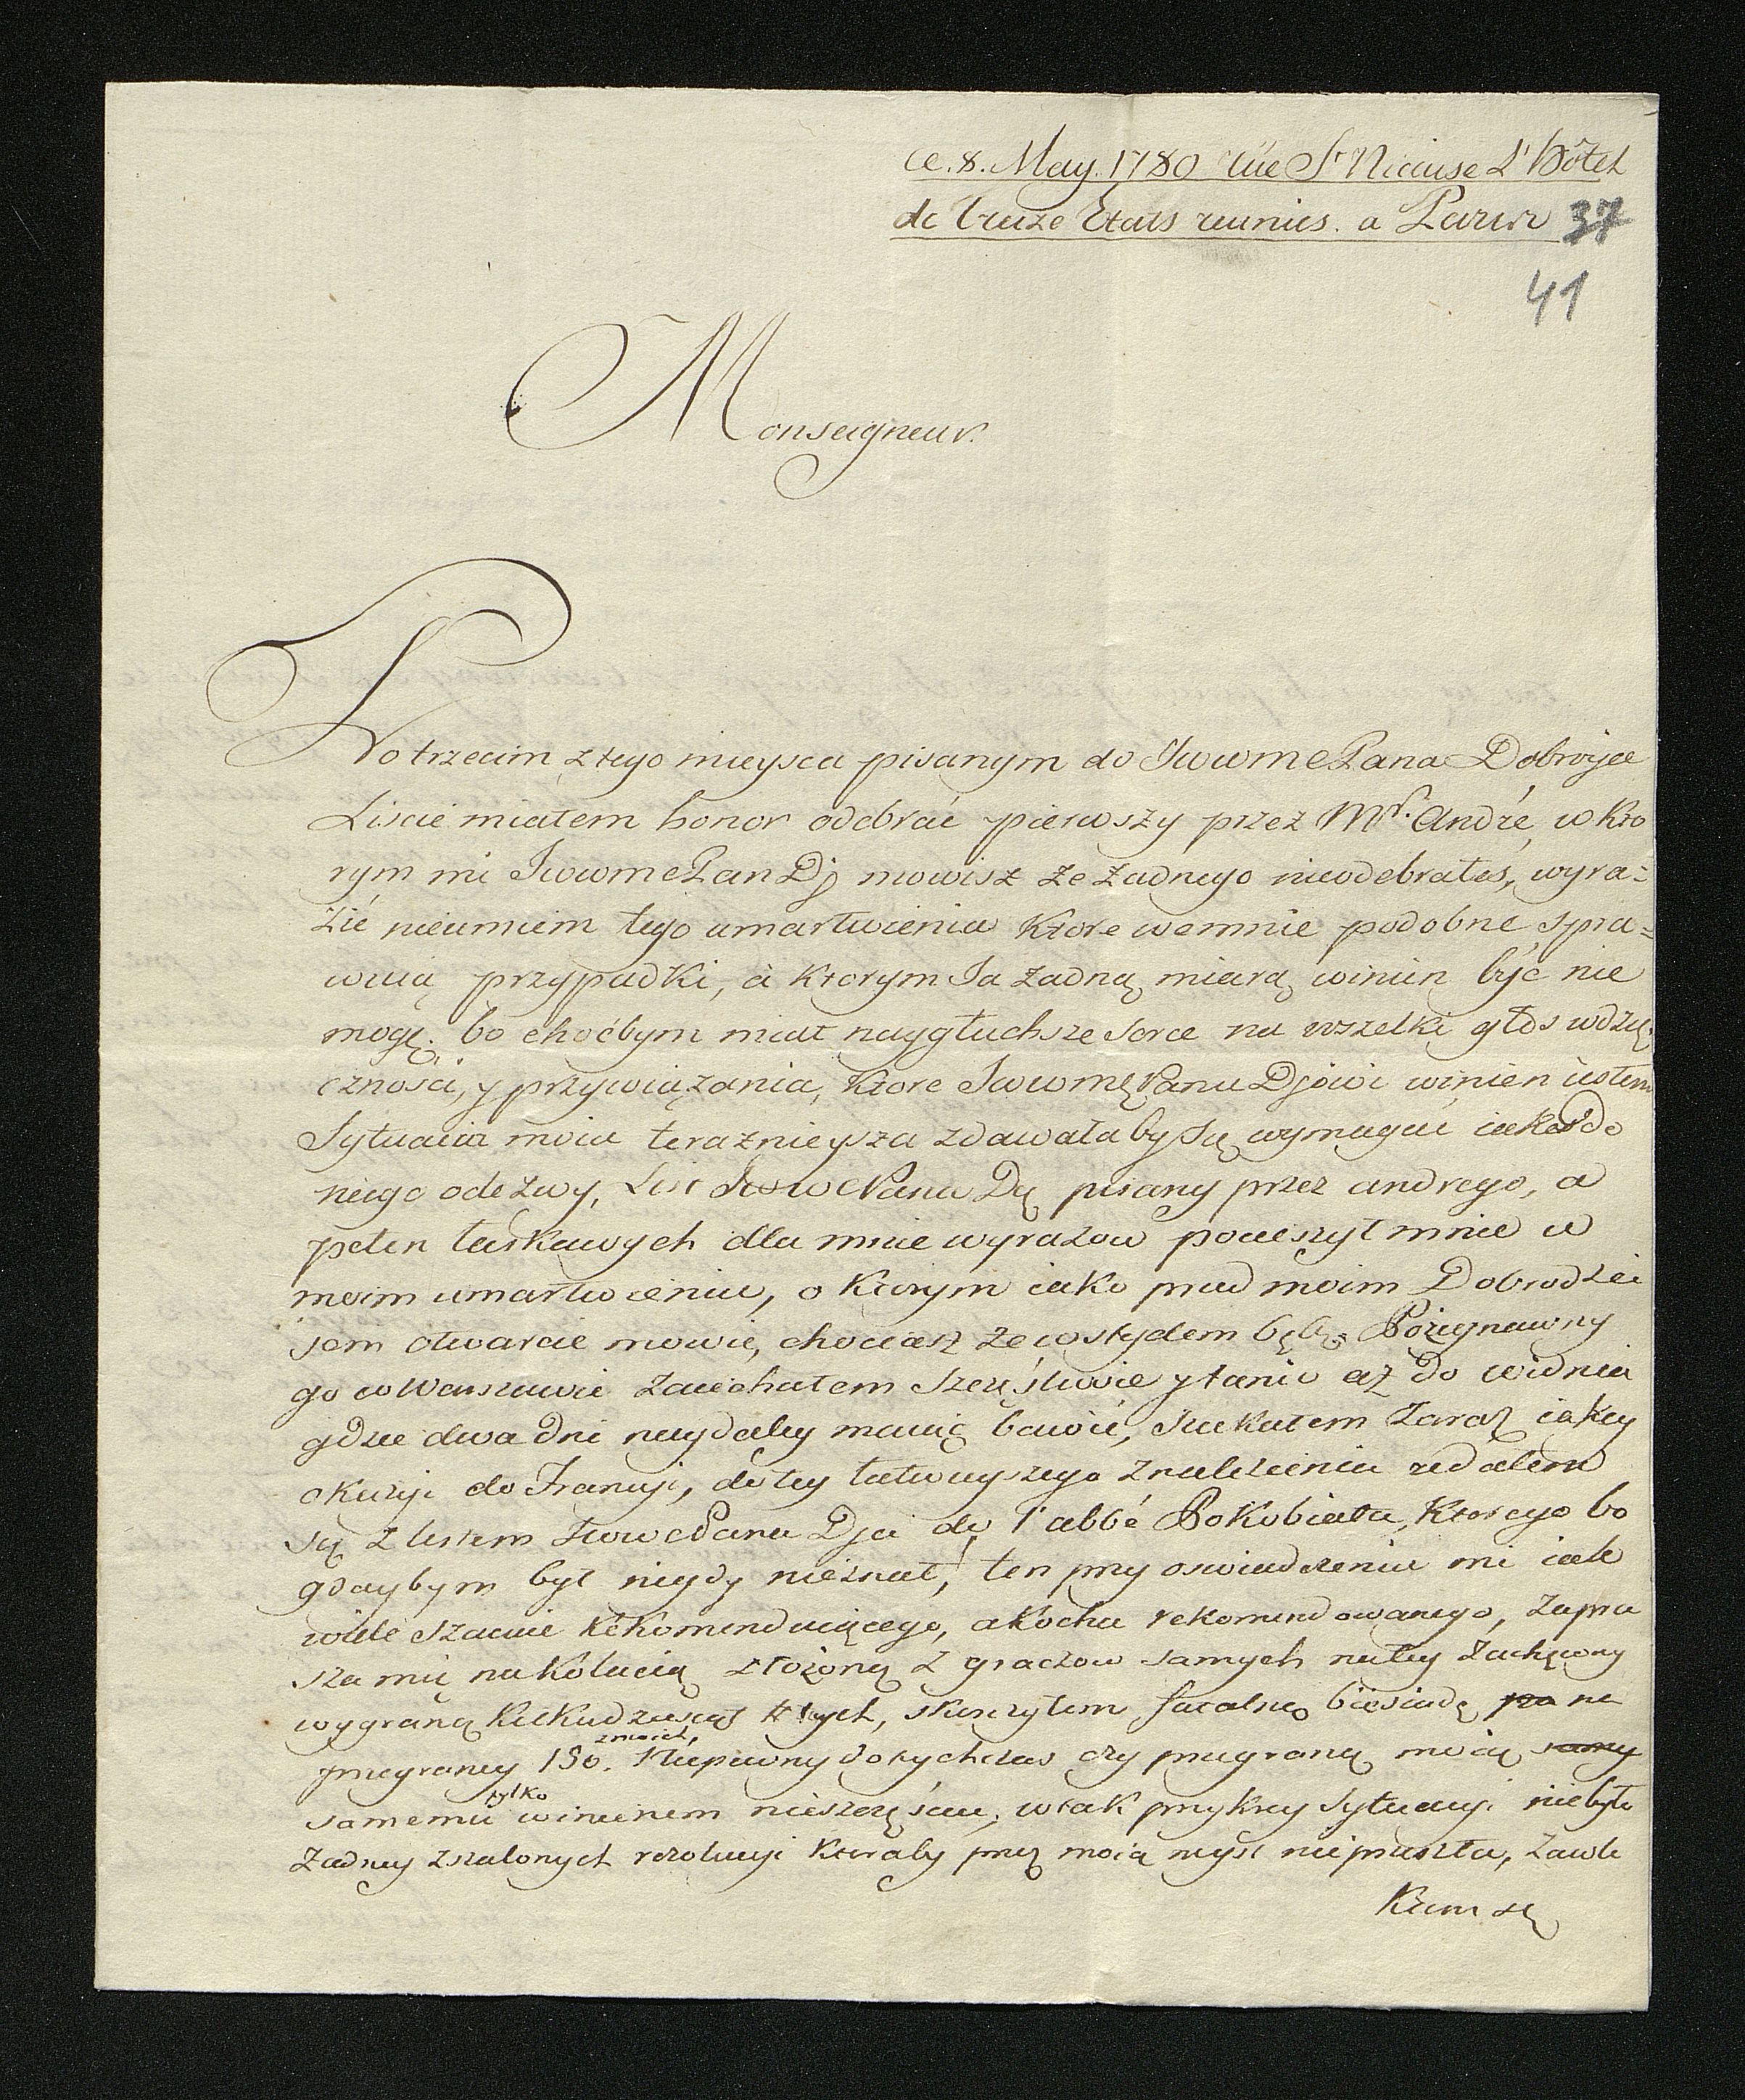 ce. 8. May. 1780 rüe St Nicaise L'Hôtel
de treize Etats reunies. a Paris 37
41
Monseigneur.
Po trzecim z tego mieysca pisanym do Jwwme Pana Dobrojce
Liscie miałem honor odebrać pierwszy przez Mr. André, w kto
rym mi Jwwme Pan Dj mowisz że żadnego nieodebrałeś, wyra=
zić nieumiem tego umartwienia ktore wemnie podobne spra=
wuią przypadki, á ktorym Ja żadną miarą winien być nie
mogę. bo choćbym miał naygłuchsze serce na wszelki głos wdzię
czności, y przywiązania, ktore Jwwmę Panu Djowi winien iestem
Sytuacia moia teraznieysza zdawałaby się wymagać iakoś do
niego odezwy, List Jwwe Pana Dę pisany przez andrego, a
pełen łaskawych dla mnie wyrazow pocieszył mnie w
moim umartwieniu, o ktorym iako przed moim Dobrodzie
jem otwarcie mowię, chociasz ze wstydem będę. Pożegnawszy
go w Warszawie zaiechałem szczęśliwie y tanio aż do widnia
gdzie dwa dni naydaley maiąc bawić, szukałem zaraz iakey
okazyi do Francyi, do tey łatwieyszego znalezienia udałem
się z listem Jwwe Pana Dja do l'abbé Pokubiata, ktorego bo
gdaybym był nigdy nieznał, ten przy oswiadczeniu mi iak
wiele szacuie rekomenduiącego, a kocha rekomendowanego, zapra
sza mię na kolacią złożoną z graczow samych na tey zachęcony
wygraną kilkudziesiąt # tych, skonczyłem fatalną biesiadę na
przegraney 150. zmoich, Niepewny dotychczas czy przegraną moią
samemu tylko winienem nieszczęściu, w tak przykrey sytuacyi niebyło
żadney szalonych rezolucyi ktoraby przez moią mysl nieprzeszła, zawle
kłem się